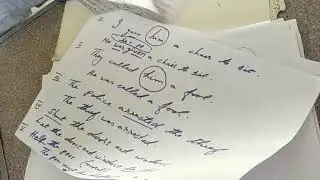 I. I gave him a chair to sit.
He was given a chair to sit.
II. They called him a fool.
He was called a fool.
III. The police arrested the thief
The thief was arrested.
IV. Shut the doors and windows
Let the doors and windows be
V. Help the poor
The poor